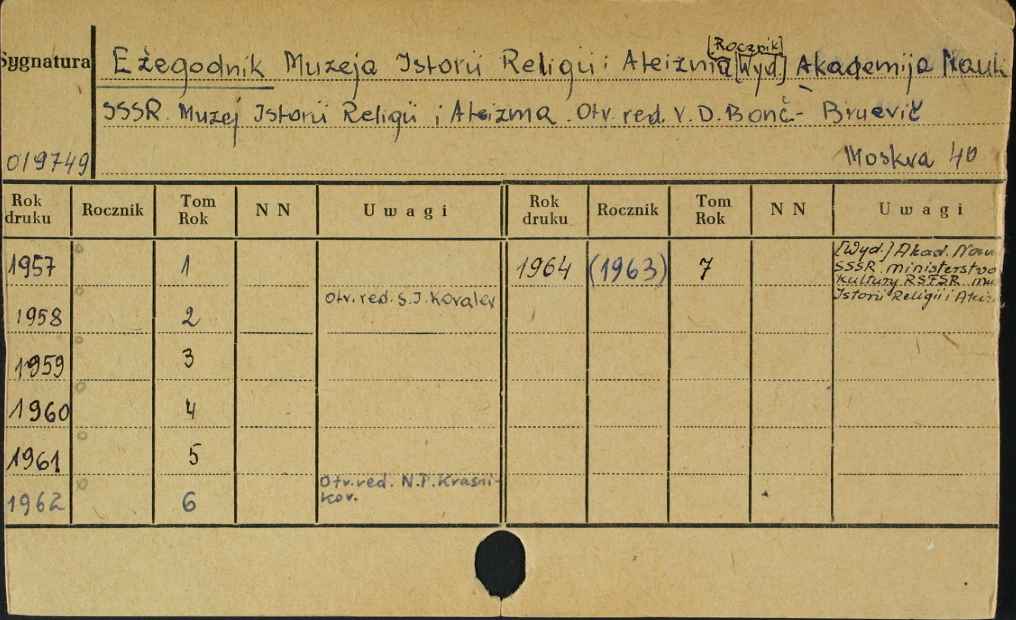 [Rocznik]
Sygnatura Ežegodnik Muzeja Istorii Religii i Ateizma [Wyd.] Akademija Nauk
SSSR. Muzej Istorii Religii i Ateizma. Otv. red. V. D. Bonč- Bruevič
019749 Moskva 40
Rok druku Rocznik Tom Rok N N Uwagi Rok druku Rocznik Tom Rok N N Uwagi
1957 1 1964 (1963) 7 [Wyd.] Akad. Nauk
SSSR ministerstvo
kultury RSFSR. mu
Otv. red. S. I. Kovalev Istorii Religii i Ateiz
1958 2
1959 3
1960 4
1961 5
Otv. red. N. P. Krasni-
1962 6 kov.